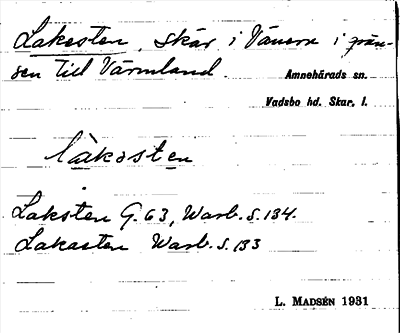 Lakesten, skär i Vänern i grän-
sen till Värmland.
Amnehärads sn.
Vadsbo hd. Skar. l.
làkəsten
Laksten G. 63, Warb. s. 134.
Lakasten Warb. s. 133
L. MADSÉN 1931